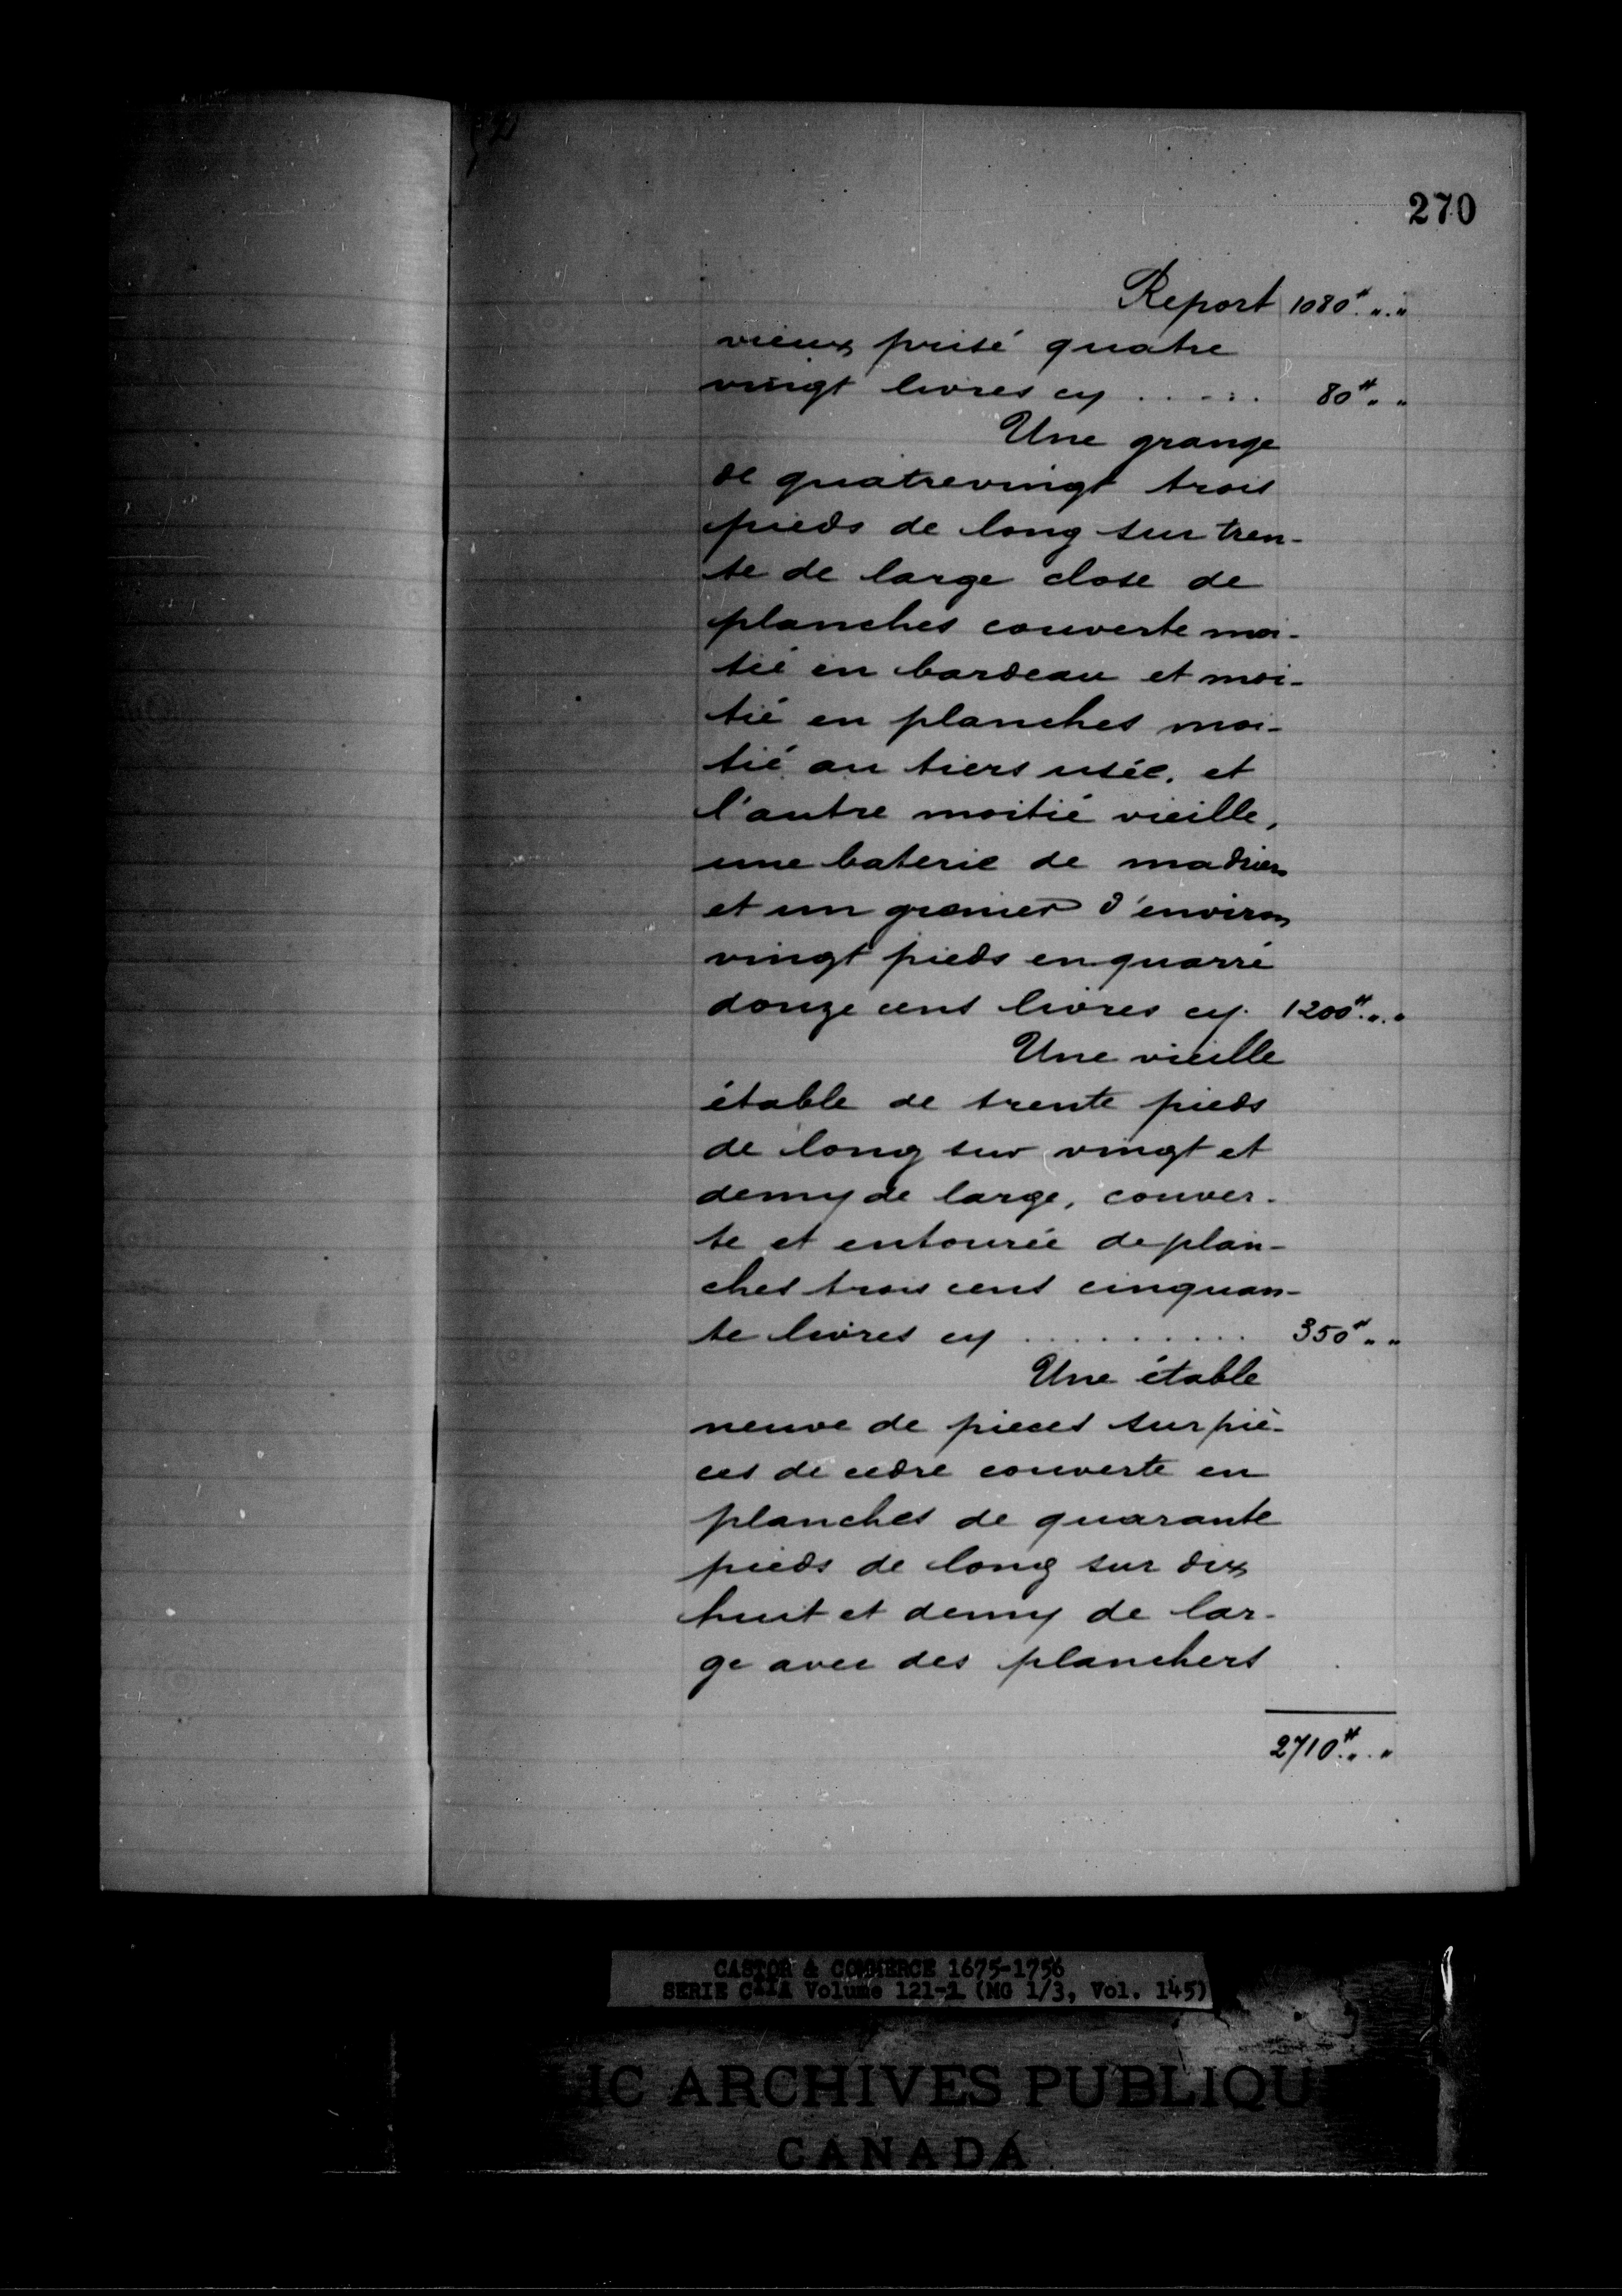 270
Report 1080# " "
vieux prisé quatre
vingt livres cy ...... 80# " "
Une grange
de quatrevingt trois
pieds de long sur tren-
te de large close de
planches couverte moi-
tié en bardeau et moi-
tié en planches moi-
tié au tiers usée, et
l'autre moitié vieille,
une baterie de madriers
et un grenier d'environ
vingt pieds en quarré
douze cent livres cy. 1200# " "
Une vieille
étable de trente pieds
de long sur vingt et
demy de large, couver-
te et entourée de plan-
ches trois cent cinquan-
te livres cy .......... 350# " "
Une étable
neuve de pieces sur piè-
ces de cedre couverte en
planches de quarante
pieds de long sur dix
huit et demy de lar-
ge avec des planchers
2710# " "
CASTOR & COMMERCE 1675-1756
SERIE C11A Volume 121-1 (MG 1/3, Vol. 145)
IC ARCHIVES PUBLIQU
CANADA